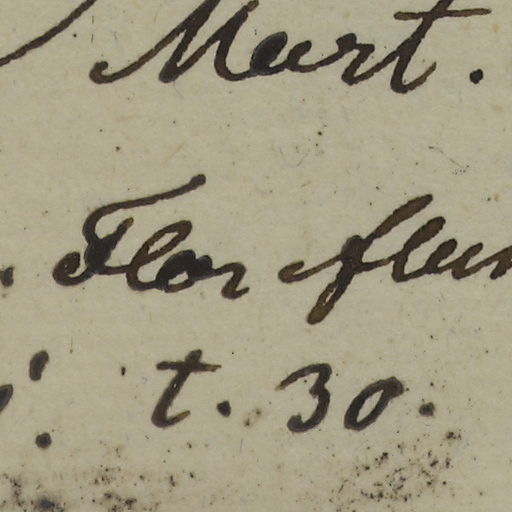 Mart.
Flor. flum
t. 30.